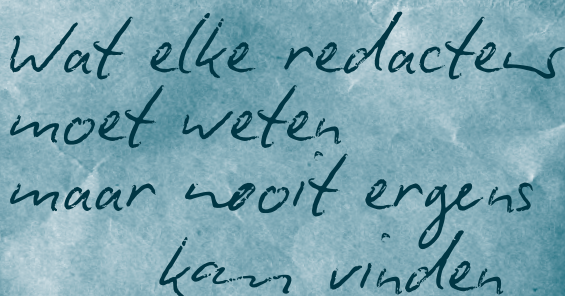 Wat elke redacteur
moet weten
maar nooit ergens
kan vinden